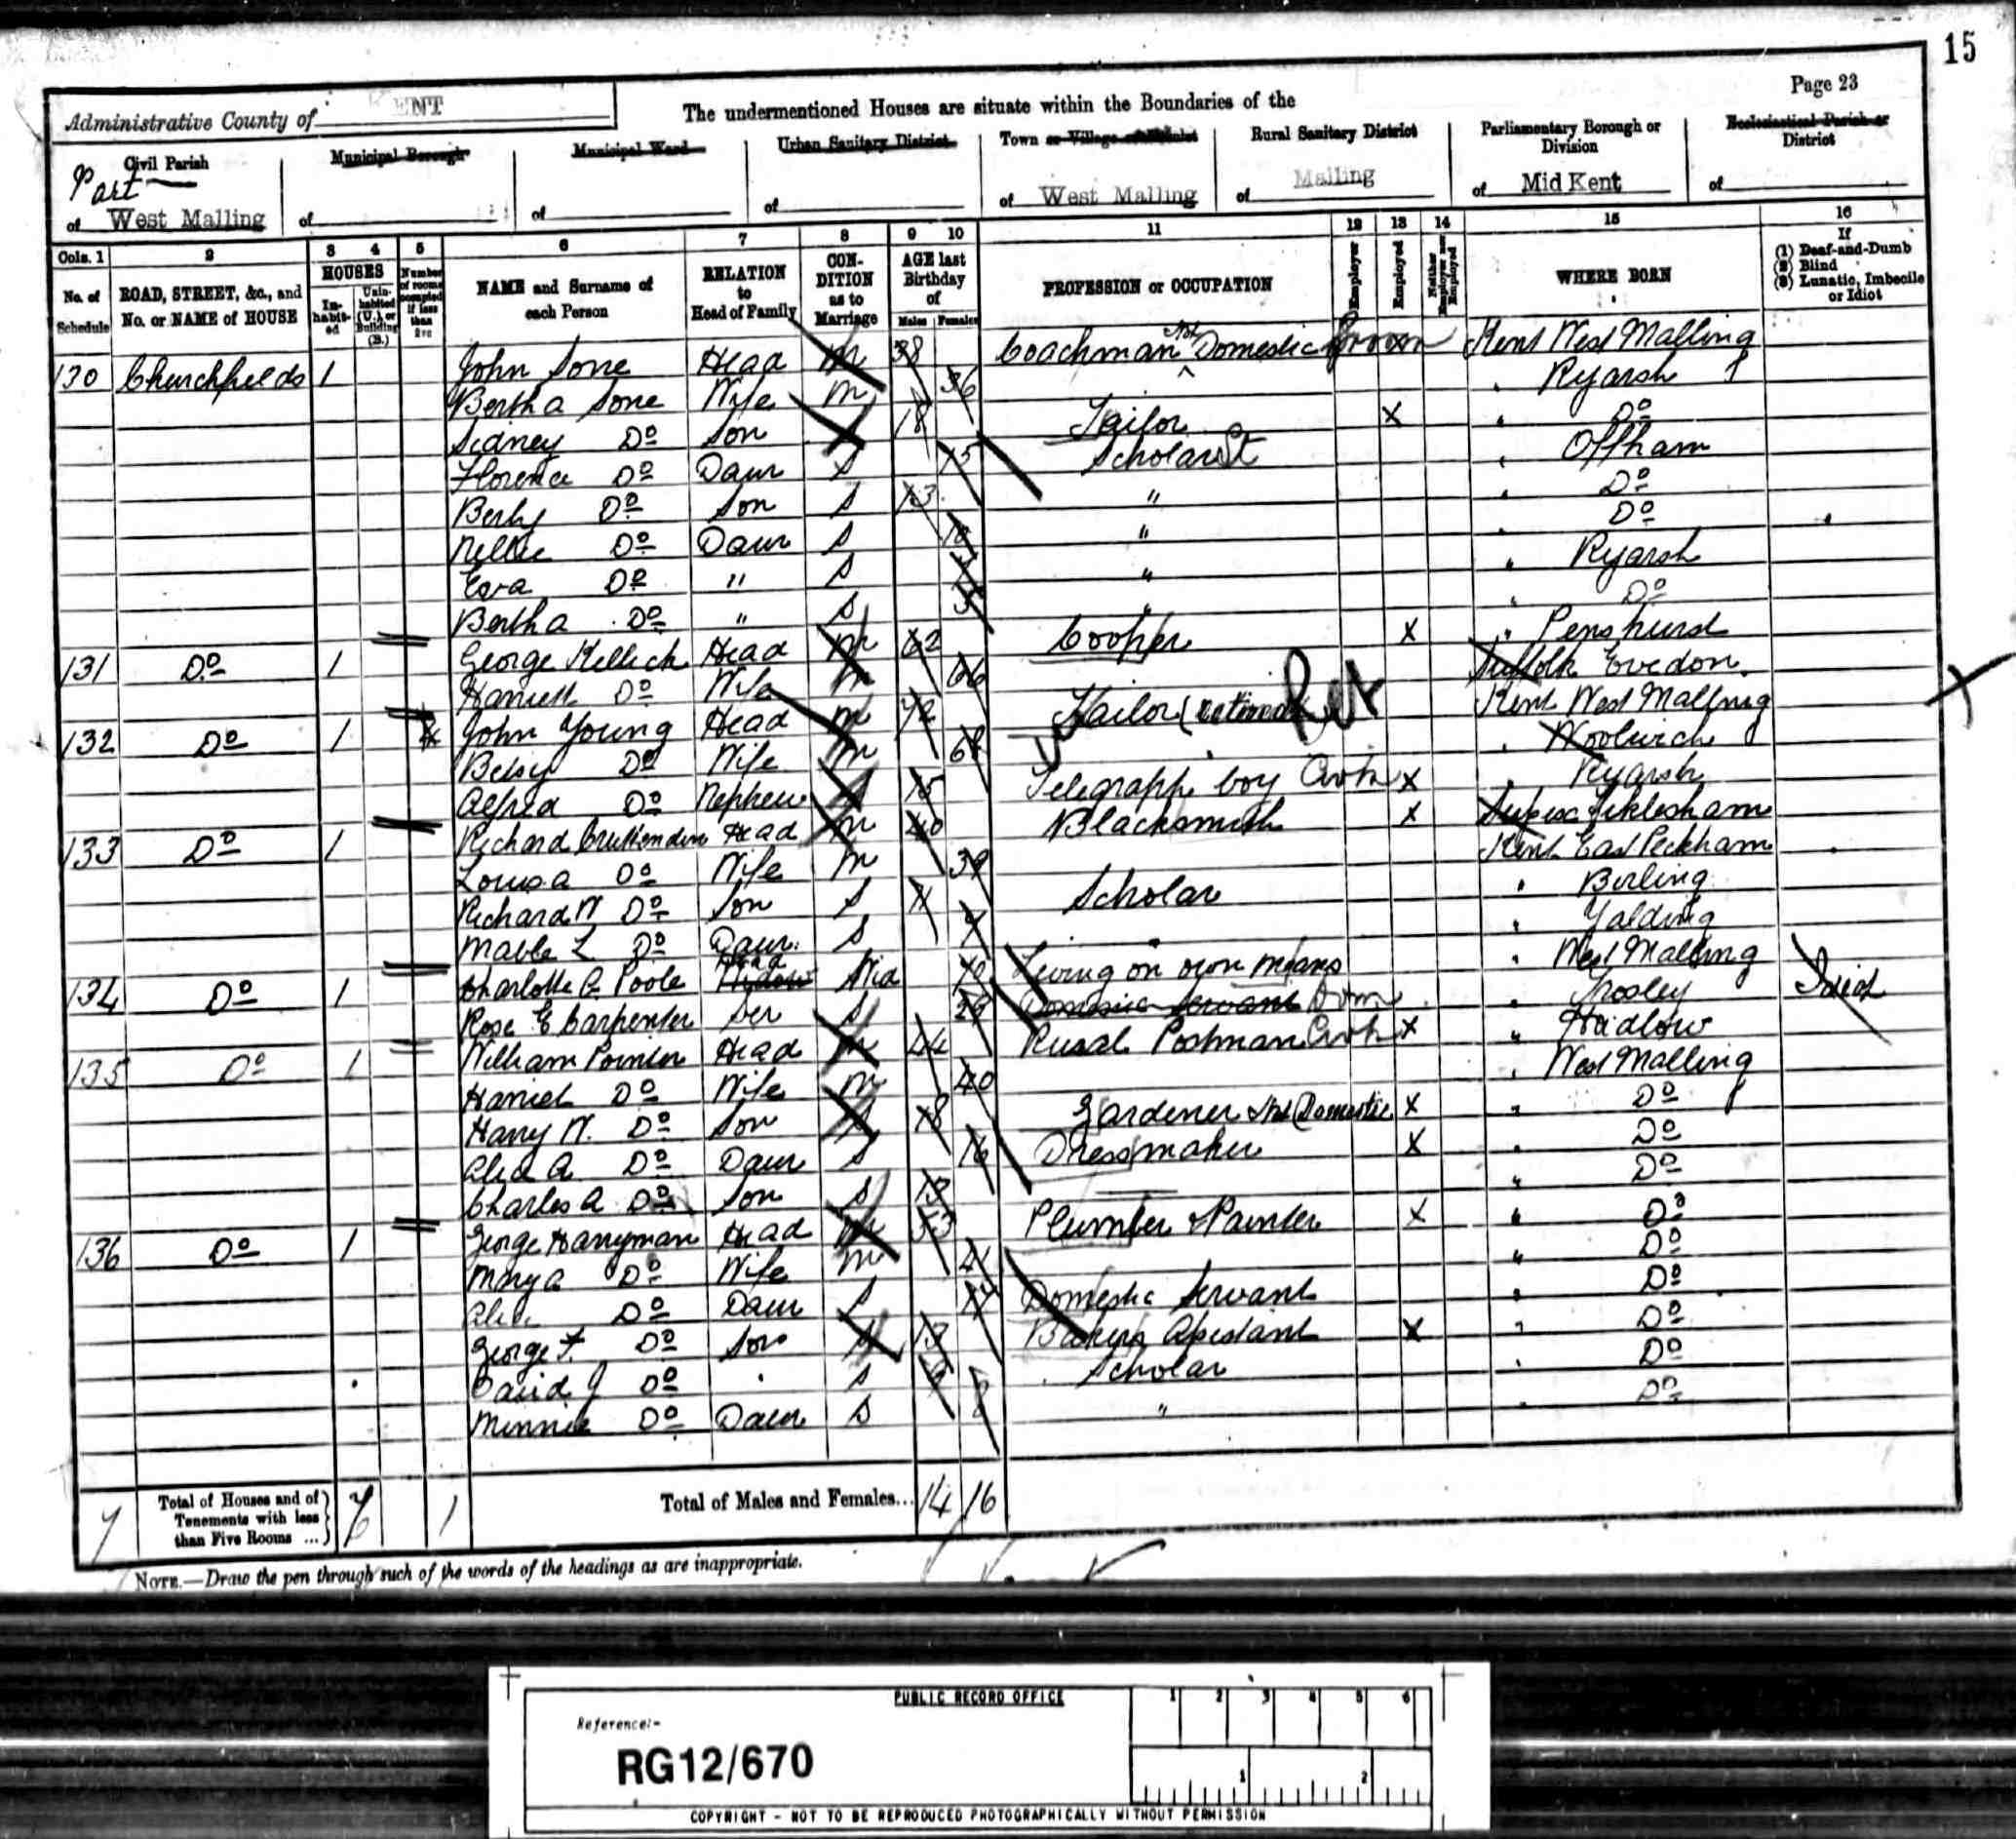 15
Page 23
Administrative County of KENT
The undermentioned Houses are situate within the Boundaries of the
Civil Parish
Part
of West Malling
Municipal Borough
of
Municipal Ward
of
Urban Sanitary District
of
Town or Village or Hamlet
of West Malling
Rural Sanitary District
of Malling
Parliamentary Borough or Division
of Mid Kent
Ecclesiastical Parish or District
of
Cols. 1 2 3 4 5 6 7 8 9 10 11 12 13 14 15 16
No. of Schedule
ROAD, STREET, &c., and No. or NAME of HOUSE
HOUSES
In-habit-ed
Unin-habited (U.), or Building (B.)
Number of rooms occupied if less than five
NAME and Surname of each Person
RELATION to Head of Family
CON-DITION as to Marriage
AGE last Birthday of
Males Females
PROFESSION or OCCUPATION
Employer
Employed
Neither Employer nor Employed
WHERE BORN
If
(1) Deaf-and-Dumb
(2) Blind
(3) Lunatic, Imbecile or Idiot
130 Churchfields 1 John Sone Head M 38 Coachman Not Domestic Groom X Kent West Malling
Bertha Sone Wife M 36 " Ryarsh
Sidney Do Son S 18 Tailor X " Do
Florence Do Daur S 15 Scholar St " Offham
Do Son S 13 " " Do
Nellie Do Daur S 10 " " Do
Eva Do " S 7 " " Ryarsh
Bertha Do " S 5 " " Do
131 Do 1 George Kellick Head M 62 Cooper X " Penshurst
Harriett Do Wife M 66 Suffolk
132 Do 1 4 John Young Head M 72 Tailor (retired) Ret Kent West Malling
Betsy Do Wife M 68 " Woolwich
Alfred Do Nephew S 15 Telegraph boy X " Ryarsh
133 Do 1 Richard Cruttenden Head M 40 Blacksmith X Sussex Icklesham
Louisa Do Wife M 39 Kent East Peckham
Richard W Do Son S 11 Scholar " Birling
Mable L Do Daur. S 7 " " Yalding
134 Do 1 Charlotte C. Poole Head Widow Wid 70 Living on own means " West Malling
Rose E Carpenter Ser S 29 Domestic Servant Dom " Trosley Idiot
135 Do 1 William Pointer Head M 44 Rural Postman X " Hadlow
Harriet Do Wife M 40 " West Malling
Harry W. Do Son S 18 Gardener Not (Domestic X " Do
Do Daur S 16 Dressmaker X " Do
Charles A Do Son S 13 " Do
136 Do 1 George Harryman Head M 53 Plumber & Painter X " Do
Mary A Do Wife M " Do
Do Daur S Domestic Servant " Do
George F. Do Son S 13 Bakers Assistant X " Do
David J Do " S 9 Scholar " Do
Minnie Do Daur S 8 " " Do
7 Total of Houses and of Tenements with less than Five Rooms ...} 1 Total of Males and Females... 14 16
NOTE.—Draw the pen through such of the words of the headings as are inappropriate.
PUBLIC RECORD OFFICE
1 2 3 4 5 6
Reference:-
RG12/670
1 2
COPYRIGHT - NOT TO BE REPRODUCED PHOTOGRAPHICALLY WITHOUT PERMISSION